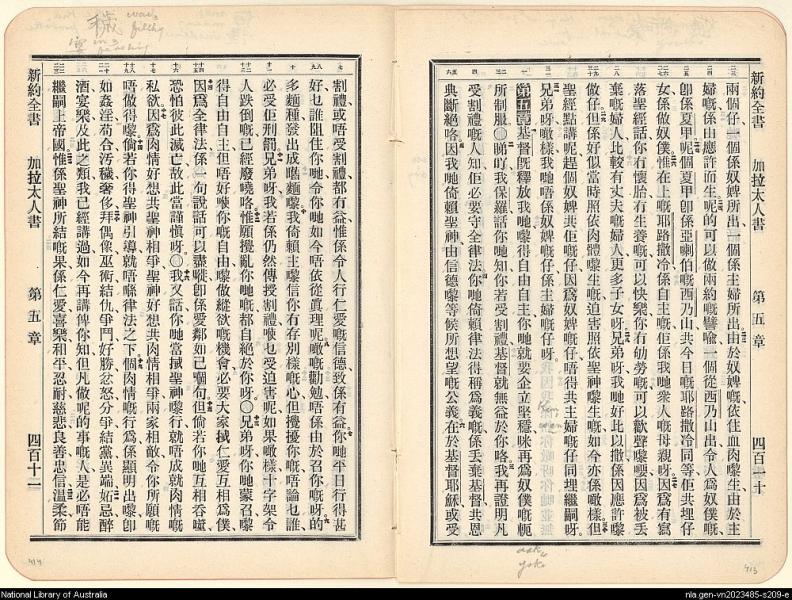 新約全書 加拉太人書 第五章 四百十
兩個仔一個係奴婢所出一個係主婦所出由於奴婢嘅依住血肉嚟生由於主
婦嘅係由應許而生呢的可以做兩約嘅譬喻一個從西乃山出令人爲奴僕嘅
卽係夏甲呢個夏甲卽係亞喇伯嘅西乃山共今日嘅耶路撒冷同等佢共埋仔
女係做奴僕惟在上嘅耶路撒冷係自主嘅佢係我哋衆人嘅母親呀因爲有寫
落聖經話你冇懷胎冇生養嘅可以快樂你冇劬勞嘅可以歡聲嚟因爲被丟
棄嘅婦人比較有丈夫嘅婦人更多子女呀兄弟呀我哋好比以撒係因應許嚟
做仔但係好似當時照依肉體嚟生嘅迫害照依聖神嚟生嘅如今亦係噉樣但
聖經點講呢趕個奴婢共佢嘅仔因爲奴婢嘅仔唔得共主婦嘅仔同埋繼嗣呀
兄弟呀噉樣我哋唔係奴婢嘅仔係主婦嘅仔呀
第五章基督旣釋放我哋嚟得自由自主你哋就要企立堅穩咪再爲奴僕嘅軛
所制服〇睇吓我保羅話你哋知你若受割禮基督就無益於你咯我再證明凡
受割禮嘅人知佢必要守全律法你哋倚賴律法得稱爲義嘅係丟棄基督共恩
典斷絕咯因我哋倚賴聖神由信德嚟等候所想望嘅公義在於基督耶穌或受
割禮或唔受割禮都冇益惟係令人行仁愛嘅信德致係有益你哋平日行得甚
好乜誰阻住你哋令你哋如今唔依從眞理呢噉嘅勸勉唔係由於召你嘅呀的
多麵種發出成啲麵嚟我倚賴主嚟信你冇存別樣嘅心但攪擾你嘅唔論乜誰
必受佢刑罰兄弟呀我若係仍然傳授割禮喉乜受迫害呢如果噉樣十字架令
人跌倒嘅已經廢曉咯惟願攪亂你哋嘅都自絕於你呀〇兄弟呀你哋蒙召嚟
得自由自主但唔好喺你嘅自由嚟做縱欲嘅機會必要大家拭仁愛互相爲僕
因爲全律法係一句說話可以盡嘥卽係愛鄰如己嗰句但倘若你哋互相吞噬
恐怕彼此滅亡故此當謹愼呀〇我又話你哋當拭聖神嚟行就唔成就肉情嘅
私欲因爲肉情好想共聖神相爭聖神好想共肉情相爭兩家相敵令你所願嘅
唔做得嚟倘若你得聖神引導就唔喺律法之下個肉情嘅行爲係顯明出嚟卽
如姦淫苟合汚穢奢侈拜偶像巫術結仇爭鬥好勝忿怒分爭結黨異端妬忌醉
酒宴樂及此之類我已經講過如今再講俾你知但凡做呢的事嘅人是必唔能
繼嗣上帝國惟係聖神所結嘅果係仁愛喜樂和平忍耐慈悲良善忠信溫柔節
新約全書 加拉太人書 第五章 四百十一
filthy
yoke
413
414
National Library of Australia
nla.gen-vn2023485-s209-e